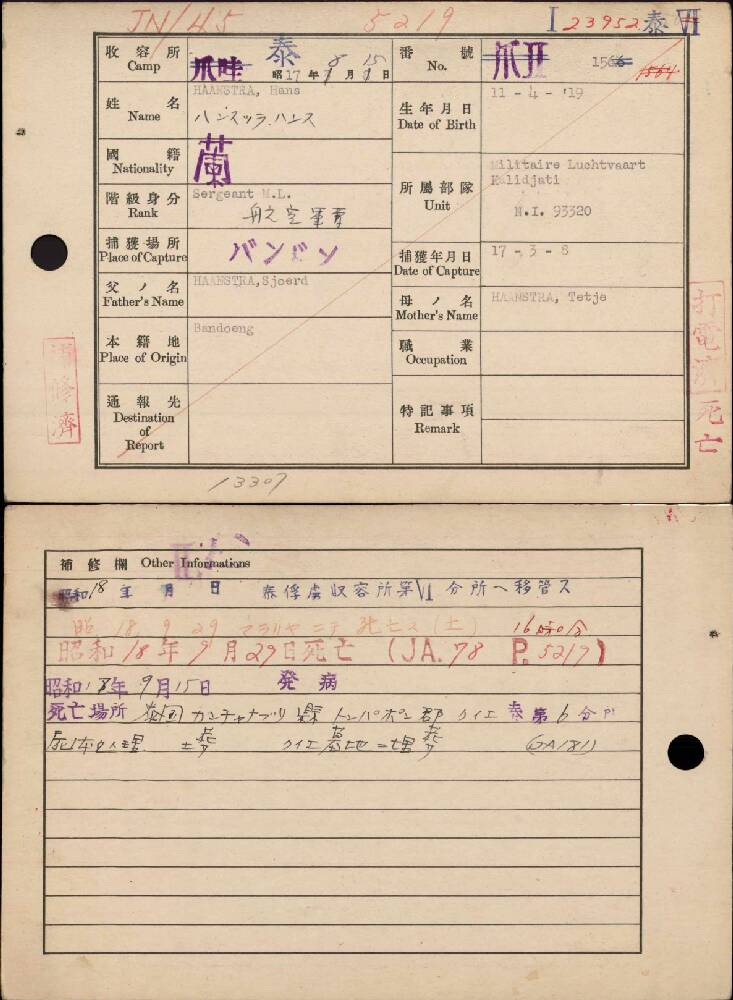 JN/45 5219 I 23952 泰 VI
收容所 Camp 爪哇 泰 昭17年8月15日
番號 No. 爪II 1566 1564
姓名 Name HAANSTRA, Hans
ハンスツラ.ハンス
生年月日 Date of Birth 11 - 4 - '19
國籍 Nationality 蘭
階級身分 Rank Sergeant M.L.
所屬部隊 Unit Militaire Luchtvaart
Kalidjati
N.I. 93320
捕獲場所 Place of Capture バンドン
捕獲年月日 Date of Capture 17 - 3 - 8
父ノ名 Father's Name HAANSTRA,Sjoerd
母ノ名 Mother's Name HAANSTRA, Tetje
本籍地 Place of Origin Bandoeng
職業 Occupation
通報先 Destination of Report
特記事項 Remark
補修濟
打電濟
死亡
13307
補修欄 Other Informations
昭和18年 月 日 泰俘虜収容所第VI分所ヘ移管ス
昭 18. 9 29 マラリヤニテ死亡ス(土)
昭和18年9月29日死亡 (JA. 78 P. 5219)
昭和18年9月15日 発病
死亡場所 泰国カンチャナブリ県トンパポン郡クイエ泰第6分所
死体処理 土葬 クイエ墓地ニ埋葬 (GA181)